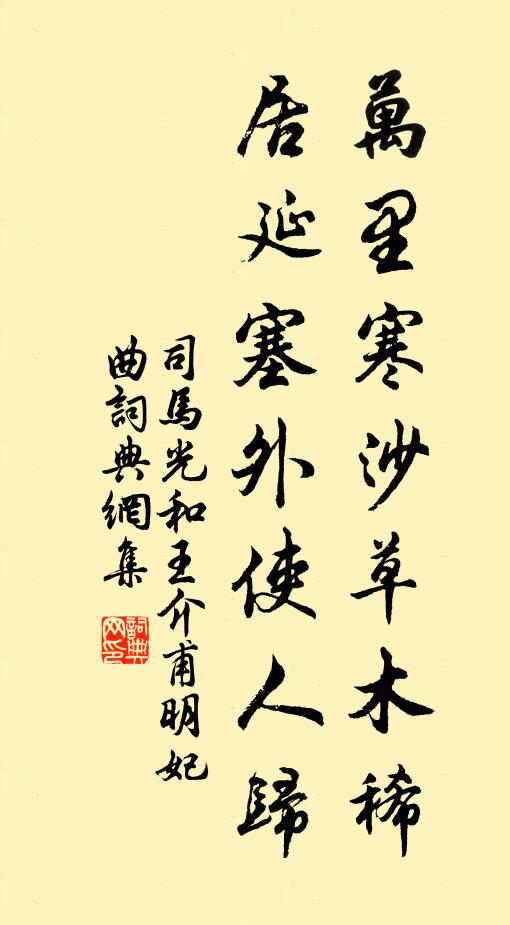 萬里寒沙草木稀
居延塞外使人歸
司馬光和王介甫明妃
曲詞典網集
詞典
网印